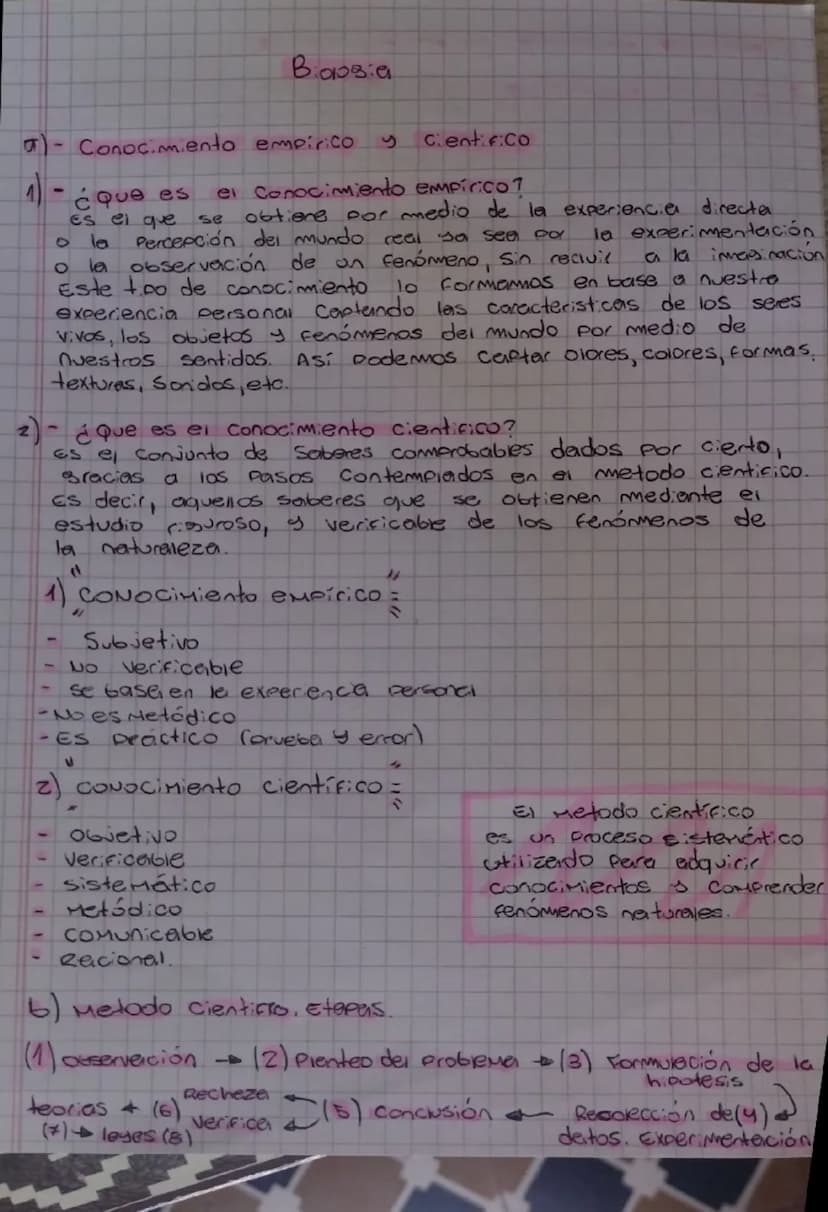 Biología
a)- Conocimiento empírico y cientifico
1)- ¿Que es el conocimiento empírico?
Es el que se obtiene por medio de la experiencia directa
o la percepción del mundo real ya sea por la experimentación
o la observación de un fenómeno, sin recurir a la imaginación
Este tipo de conocimiento lo formamos en base a nuestra
experiencia personal captando las caracteristicas de los seres
vivos, los objetos y fenómenos del mundo por medio de
nuestros sentidos. Así podemos captar olores, colores, formas,
texturas, sonidos, etc.
2)- ¿Que es el conocimiento cientifico?
Es el conjunto de saberes comprobables dados por cierto,
gracias a los pasos contemplados en el metodo cientifico.
Es decir, aquellos saberes que se obtienen mediante el
estudio riguroso, y verificable de los fenómenos de
la naturaleza.
1) "Conocimiento empírico":
- Subjetivo
- No verificable
- se basa en la experenca personal
- No es Metódico
- Es práctico (prueba y error)
2) "conocimiento científico":
- Objetivo
- verificable
- sistemático
- Metódico
- comunicable
- Racional.
El metodo científico
es un proceso sistemático
utilizando para adquirir
conocimientos y comprender
fenómenos naturales.
b) Metodo cientifico. Etapas.
(1) observación → (2) Planteo del problema → (3) Formulación de la
hipotesis
teorias ← (6) Rechaza verifica ← (5) conclusión ← Recolección de (4)
(7) → leyes (8) datos. Experimentación